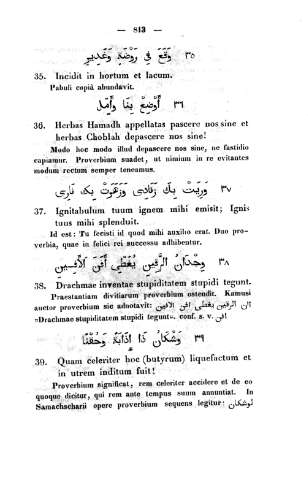 — 813 —
٣٥ وَقَعَ فِي رَوْضَةٍ وَغَدِيرٍ
35. Incidit in hortum et lacum.
Pabuli copiâ abundavit.
٣٦ أَوْضِعْ بِنَا وَأَمِلْ
36. Herbas Hamadh appellatas pascere nos sine et
herbas Choblah depascere nos sine!
Modo hoc modo illud depascere nos sine, ne fastidio
capiamur. Proverbium suadet, ut nimium in re evitantes
modum rectum semper teneamus.
٣٧ وَرِيَتْ بِكَ زِنَادِي وَزَهَرَتْ بِكَ نَارِي
37. Ignitabulum tuum ignem mihi emisit; Ignis
tuus mihi splenduit.
Id est: Tu fecisti id quod mihi auxilio erat. Duo pro-
verbia, quae in felici rei successu adhibentur.
٣٨ وِجْدَانُ الرِّقِينَ يُغَطِّي أَفَنَ الْأَفِينِ
38. Drachmae inventae stupiditatem stupidi tegunt.
Praestantiam divitiarum proverbium ostendit. Kamusi
auctor proverbium sic adnotavit: إن الرقين يغطي أفن الأفين
»Drachmae stupiditatem stupidi tegunt«. conf. s. v. أفن
٣٩ وَشْكَانَ ذَا إِذَابَةً وَحَقْنًا
39. Quam celeriter hoc (butyrum) liquefactum et
in utrem inditum fuit!
Proverbium significat, rem celeriter accidere et de eo
quoque dicitur, qui rem ante tempus suum annuntiat. In
Samachscharii opere proverbium sequens legitur: لوشكان